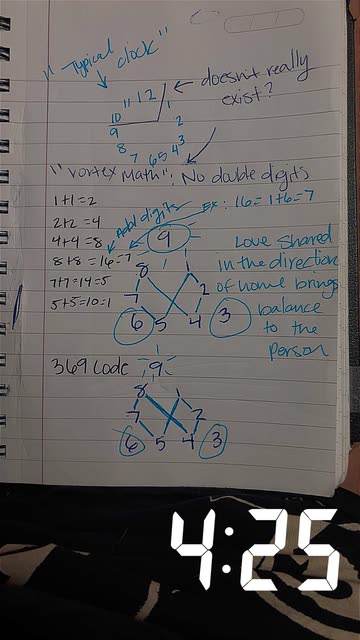 "Typical clock"
doesn't really
exist?
11 12
10 1
9 2
8 7 6 5 4 3
"Vortex Math": No double digits
1+1=2
2+2=4
4+4=8
8+8=16=7
7+7=14=5
5+5=10=1
Add digits
Ex: 16=1+6=7
9
8 1
7 2
6 5 4 3
Love shared
in the direction
of home brings
balance
to the
person
369 Code
9
8 1
7 2
6 5 4 3
4:25